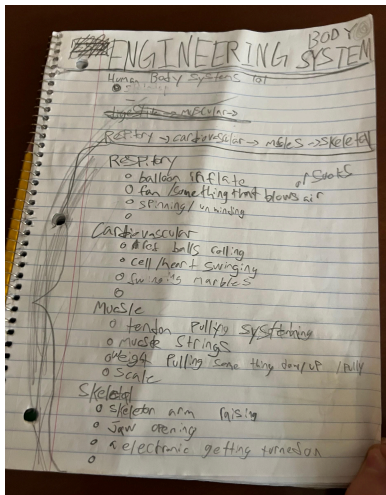 ENGINEERING BODY SYSTEM
Human Body Systems 101
Respitry → cardiovascular → → Skeletal
Respitry
o balloon inflate
o fan / something that blows air
o spinning / unwinding
o
Cardiovascular
o balls rolling
o cell/heart swinging
o swinging marbles
o
Muesle
o tendon pullyg
o muscle strings
o weight pulling some thing down/up / pully
o scale
Skeletal
o skeleton arm raising
o Jaw opening
o a electronic getting turned on
o